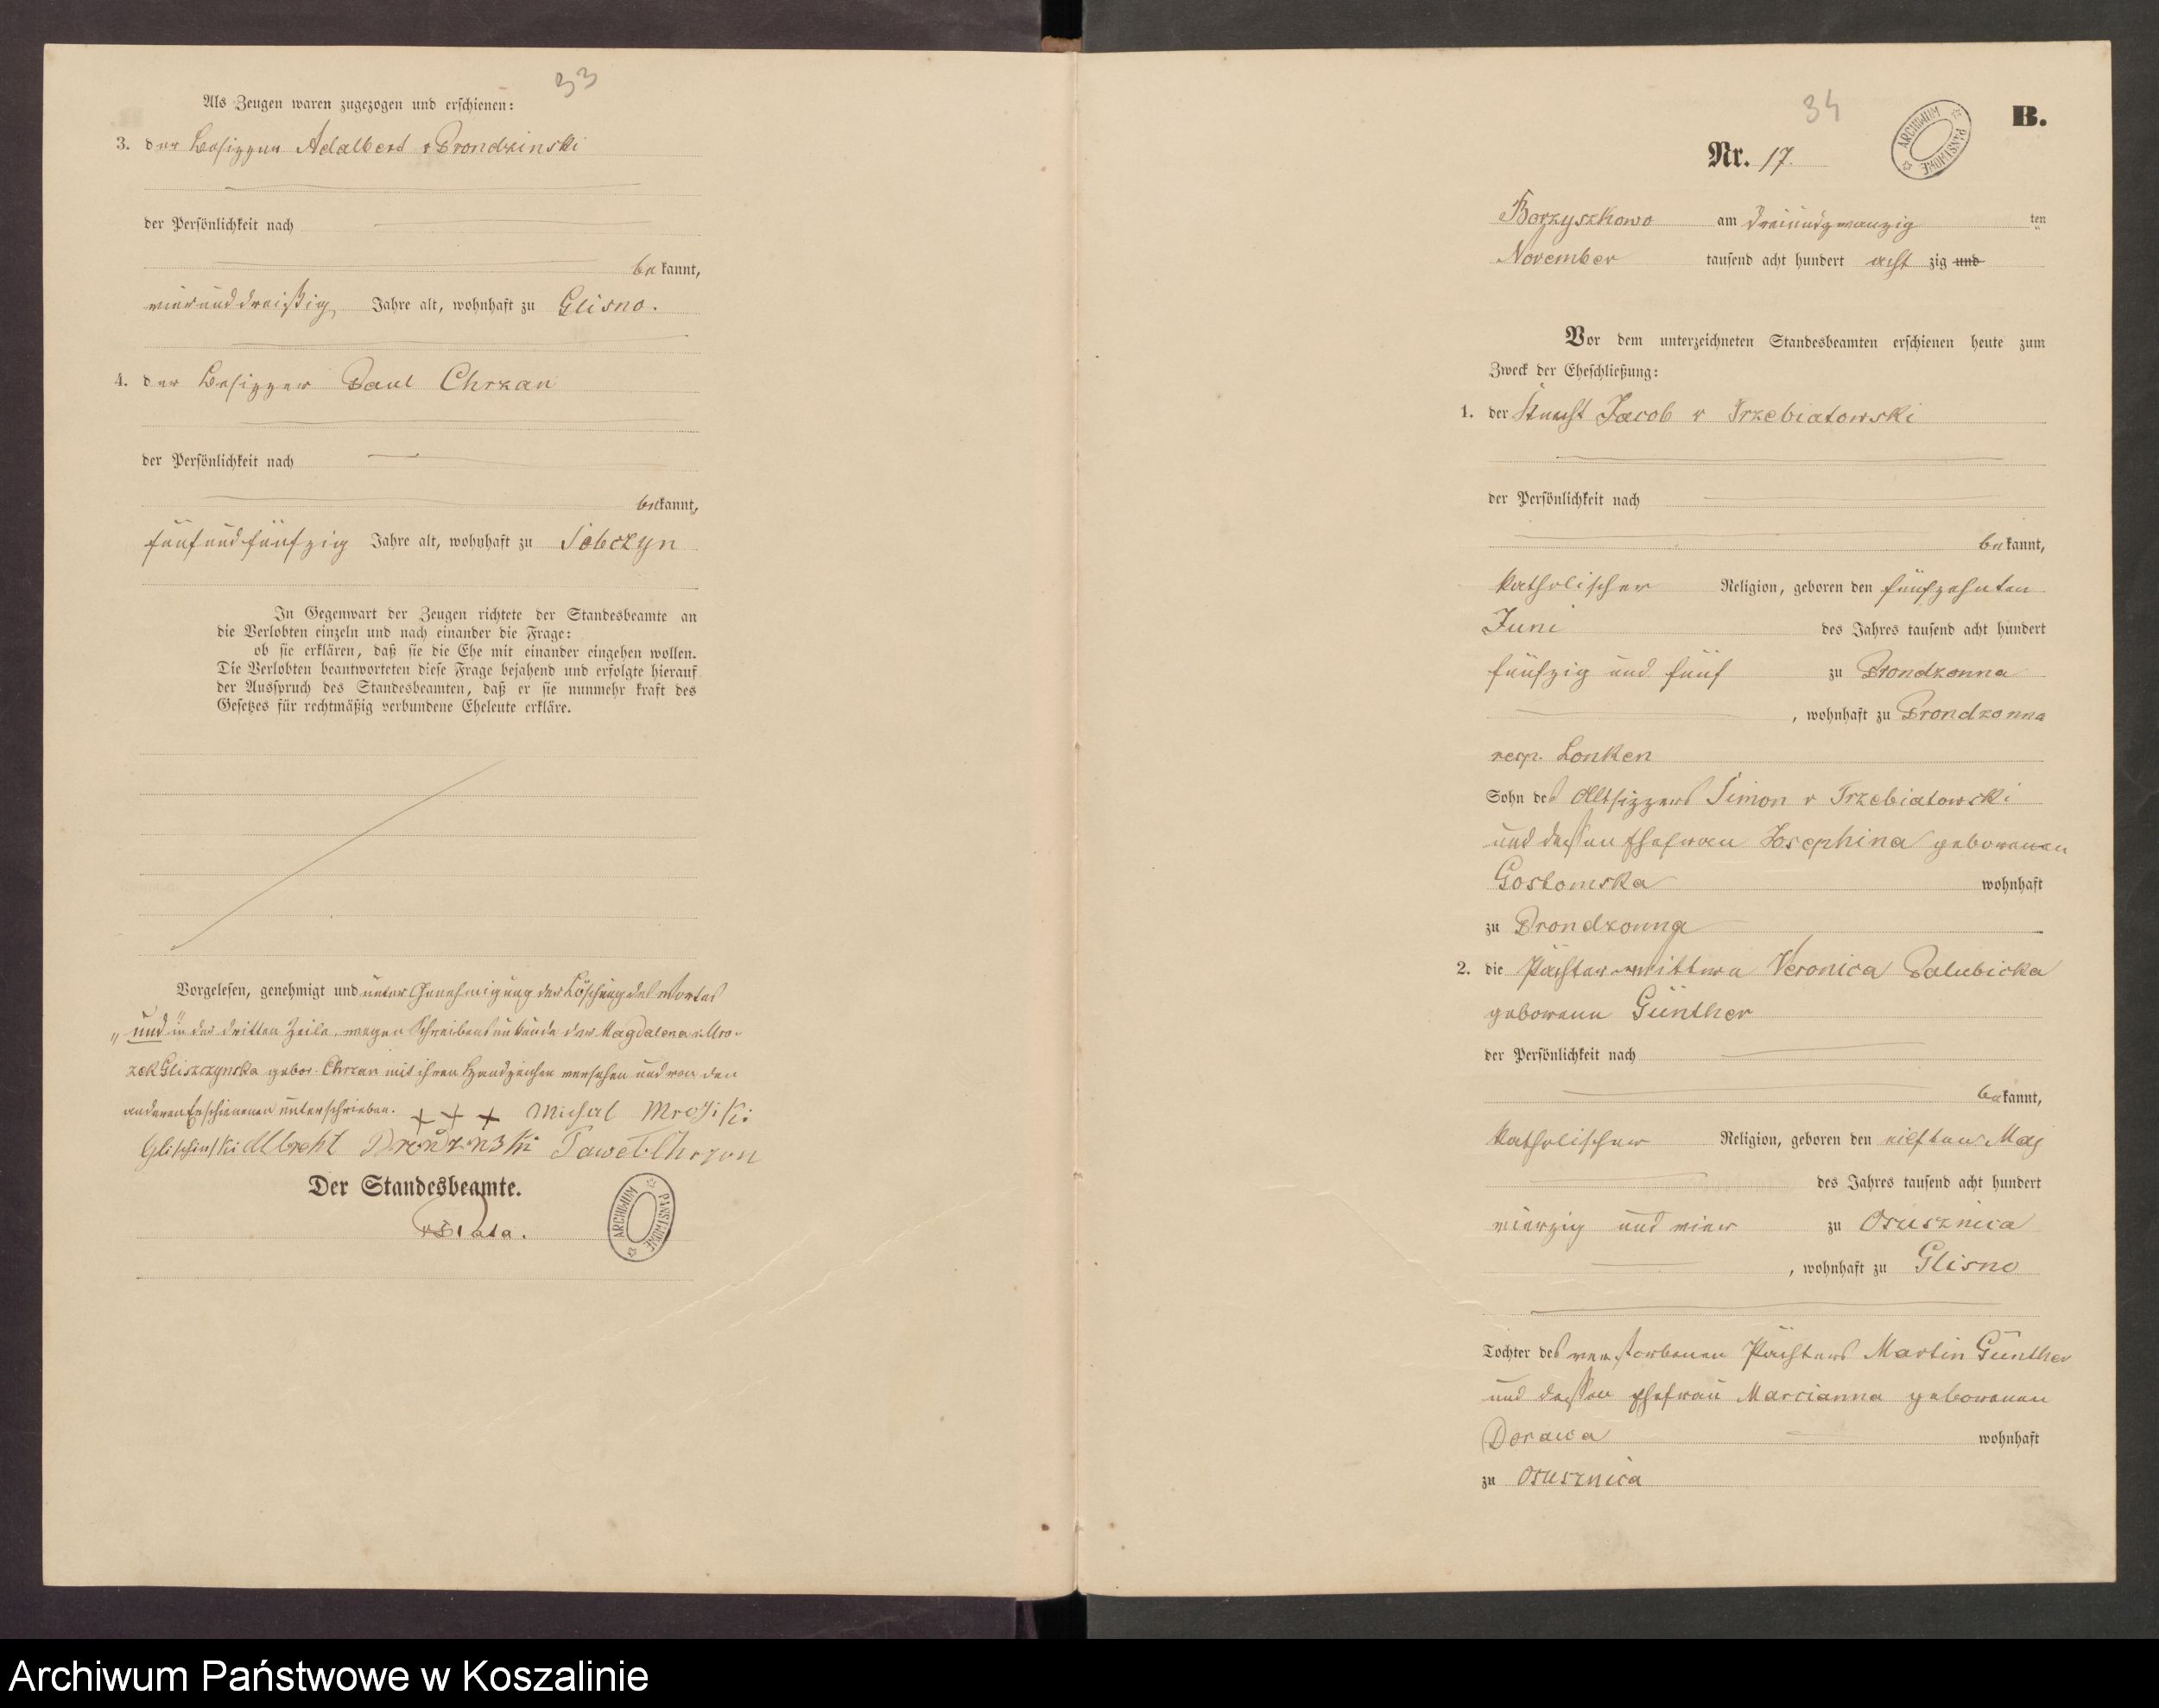 33
Als Zeugen waren zugezogen und erschienen:
3. der Besitzer Adalbert v Prondzinski
der Persönlichkeit nach
be kannt,
vierunddreißig Jahre alt, wohnhaft zu Glisno.
4. der Besitzer Paul Chrzan
der Persönlichkeit nach
bekannt,
fünfundfünfzig Jahre alt, wohnhaft zu Sobczyn
In Gegenwart der Zeugen richtete der Standesbeamte an
die Verlobten einzeln und nach einander die Frage:
ob sie erklären, daß sie die Ehe mit einander eingehen wollen.
Die Verlobten beantworteten diese Frage bejahend und erfolgte hierauf
der Ausspruch des Standesbeamten, daß er sie nunmehr kraft des
Gesetzes für rechtmäßig verbundene Eheleute erkläre.
Vorgelesen, genehmigt und unter Genehmigung der Löschung des Wortes
„und" in der dritten Zeile, wegen Schreibensunkunde der Magdalena v. Mro-
zek Gliszczynska gebor. Chrzan mit ihren Handzeichen versehen und von den
anderen Erschienenen unterschrieben. + + + Michal
Albreht
Der Standesbeamte.
ARCHIWUM PAŃSTWOWE
34
B.
ARCHIWUM PAŃSTWOWE
Nr. 17.
Borzyszkowo am dreiundzwanzig ten
November tausend acht hundert acht zig und
Vor dem unterzeichneten Standesbeamten erschienen heute zum
Zweck der Eheschließung:
1. der Knecht Jacob v Trzebiatowski
der Persönlichkeit nach
be kannt,
katholischer Religion, geboren den fünfzehnten
Juni des Jahres tausend acht hundert
fünfzig und fünf zu Prondzonna
, wohnhaft zu Prondzonna
resp. Lonken
Sohn des Altsitzers Simon v Trzebiatowski
und dessen Ehefrau Josephina geborenen
Gostomska wohnhaft
zu Prondzonna
2. die Pächterwittwe Veronica Palubicka
geborene Günther
der Persönlichkeit nach
bekannt,
katholischer Religion, geboren den eilften May
des Jahres tausend acht hundert
vierzig und vier zu Osusznica
, wohnhaft zu Glisno
Tochter des verstorbenen Pächters Martin Günther
und dessen Ehefrau Marcianna geborenen
Dorawa wohnhaft
zu Osusznica
Archiwum Państwowe w Koszalinie